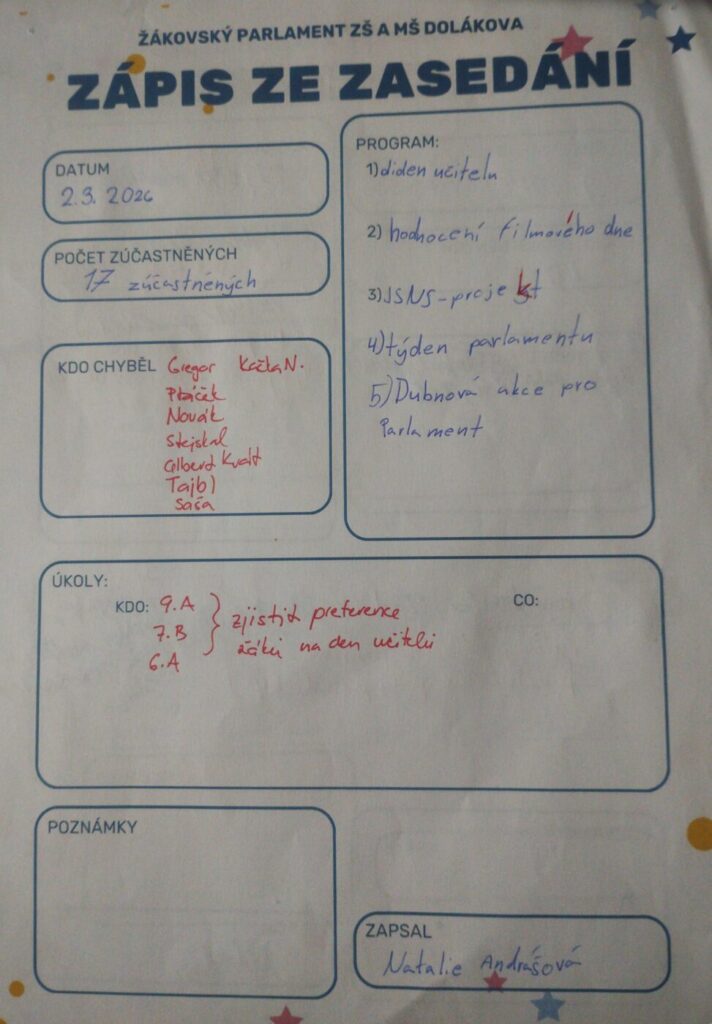 ŽÁKOVSKÝ PARLAMENT ZŠ A MŠ DOLÁKOVA
ZÁPIS ZE ZASEDÁNÍ
DATUM
2.3. 2026
POČET ZÚČASTNĚNÝCH
17 zúčastněných
KDO CHYBĚL Gregor Kačka N.
Ptáček
Novák
Stejskal
Gilbert Kvalt
Tajbl
Saša
PROGRAM:
1) diden učitelu
2) hodnocení filmového dne
3) JSNS - projekt
4) týden parlamentu
5) Dubnová akce pro
Parlament
ÚKOLY:
KDO: 9.A
7.B
6.A
zjistit preference
žáků na den učitelů
CO:
POZNÁMKY
ZAPSAL
Natalie Andrášová